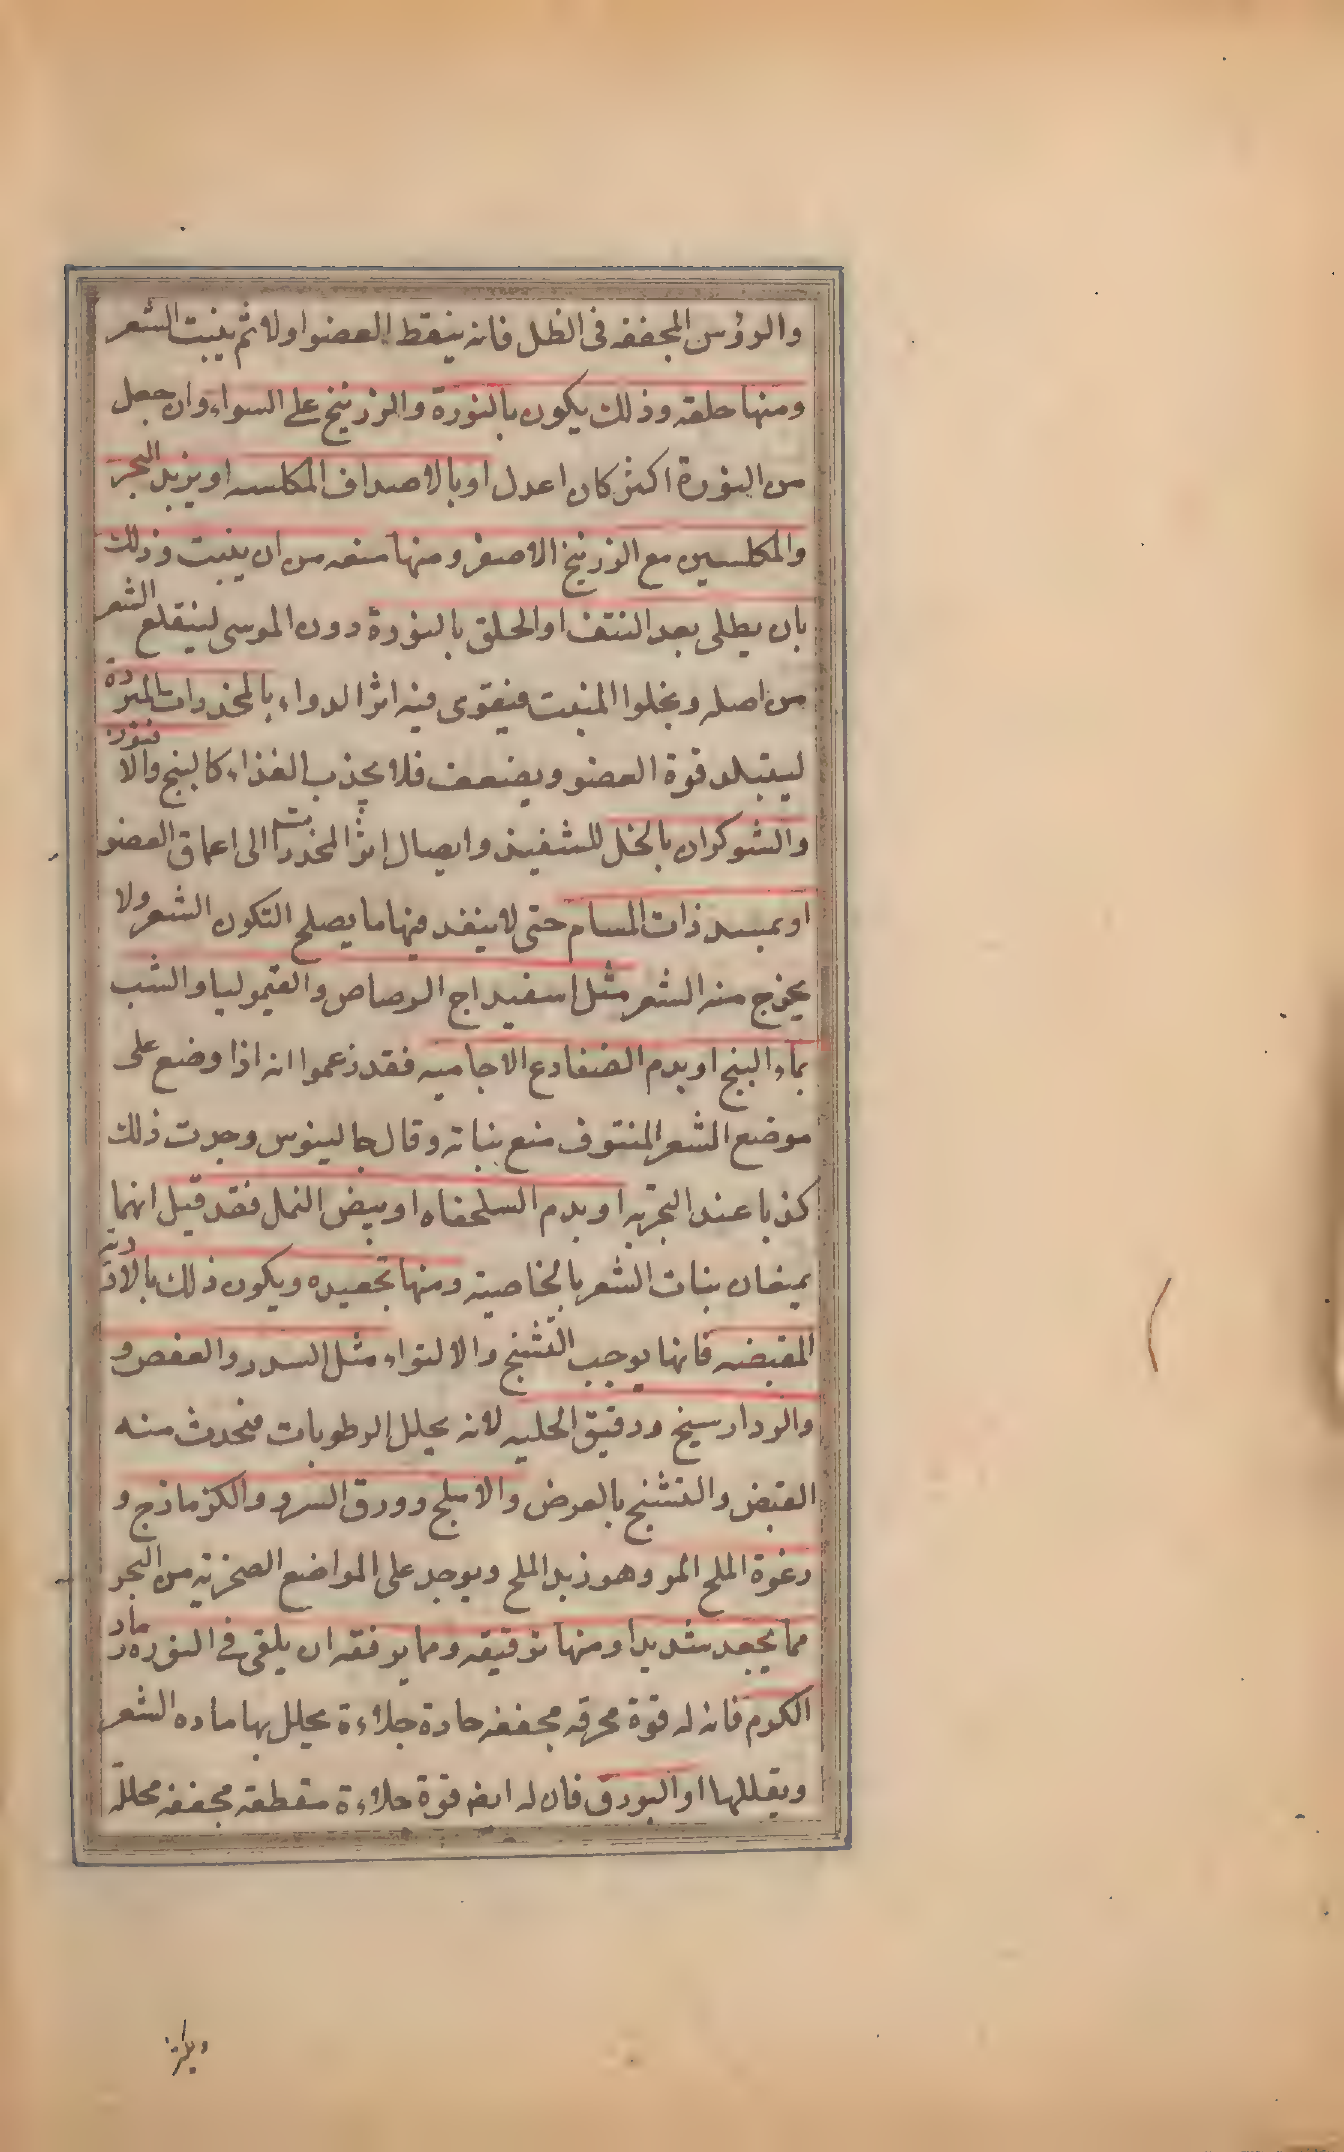 والرؤس المجففه فى الظل فانه ينقط العضو اولا ثم ينبت الشعر
ومنها حلقه وذلك يكون بالنورة والزرنيخ على السواء وان جعل
من النورة اكثر كان اعدل او بالاصداف المكلسه او يزبد البحر
والمكلسين مع الزرنيخ الاصفر ومنها منعه من ان ينبت وذلك
بان يطلى بعد النتف او الحلق بالنورة دون الموسى لينقلع الشعر
من اصله ويخلوا المنبت فيقوى فيه اثر الدواء بالمخدرات المبردة
ليتبلد قوة العضو ويضعف فلا يجذب الغذاء كالبنج والافيون
والشوكران بالخل للتنفيذ وايصال اثر المخدرات الى اعماق العضو
او بمسددات المسام حتى لا ينفد فيها ما يصلح التكون الشعر ولا
يخرج منه الشعر مثل اسفيداج الرصاص والقيموليا والشب
بماء البنج او بدم الضفادع الاجاميه فقد زعموا انه اذا وضع على
موضع الشعر المنتوف منع بناته وقال جالينوس وجدت ذلك
كذبا عند التجربه او بدم السلحفاه او بيض النمل فقد قيل انهما
يمنعان بنات الشعر بالخاصية ومنها تجعيده ويكون ذلك بالادويه
المقبضه فانها يوجب التشنج والالتواء مثل السدر والعفص و
والردارسيخ ودقيق الحلبه لانه يحلل الرطوبات فيحدث منه
القبض والتشنج بالعرض والاملج وورق السرو والكزمازج و
رغوة الملح المر وهو زبد الملح ويوجد على المواضع الصخرية من البحر
مما يجعد شديدا ومنها ترقيقه ومما يرققه ان يلقى فى النوره رماد
الكرم فانه له قوة محرقه مجففه حادة جلاءة يحلل بها ماده الشعر
ويقللها او البورق فان له ايض قوة جلاءة مقطعه مجففه محللة
ويكثر